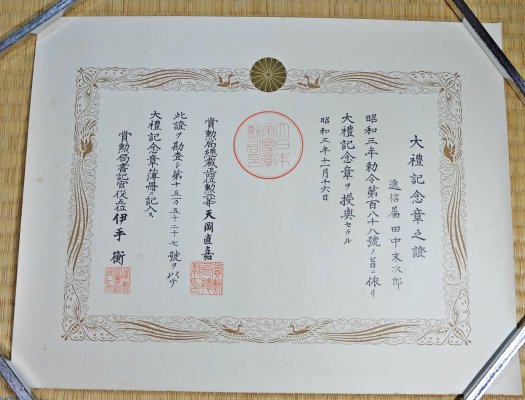 大禮記念章之證
遞信屬 田中末次郎
昭和三年勅令第百八十八號ノ旨ニ依リ
大禮記念章ヲ授與セラル
昭和三年十一月十六日
大日本
帝國賞
勲局印
賞勲局總裁正四位勲二等天岡直嘉
此證ヲ勘査シ第十五万五千二十七號ヲ以テ
大禮記念章簿冊ニ記入ス
賞勲局書記官從五位伊手衡